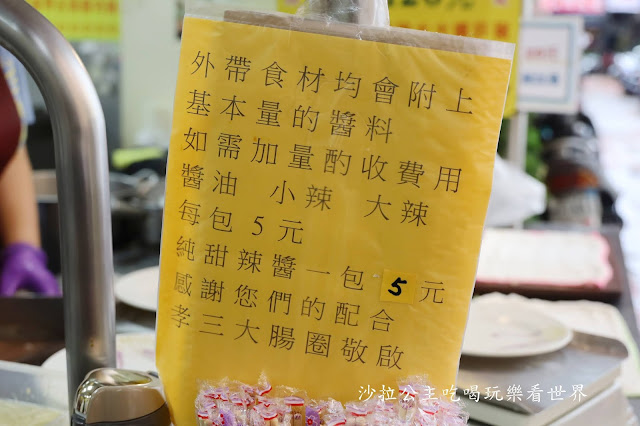 外帶食材均會附上
基本量的醬料
如需加量酌收費用
醬油 小辣 大辣
每包 5 元
純甜辣醬一包 5 元
感謝您們的配合
孝三大腸圈敬啟
沙拉公主吃喝玩樂看世界